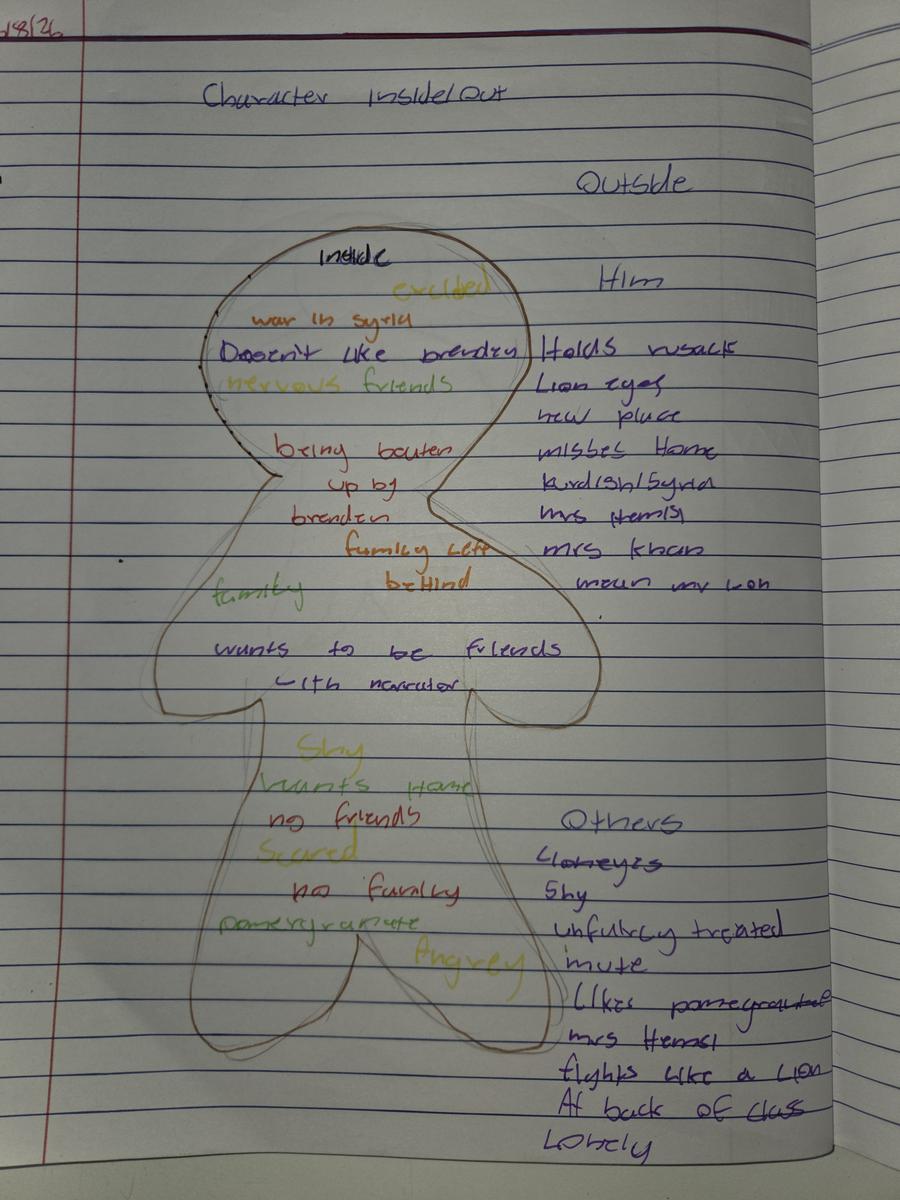 Character Inside/Out
Outside
inside
excided
war in syria
Doesn't like brenden
nervous friends
being beuten
up by
brenden
family left
behind
family
wants to be friends
with narrator
Shy
wants Home
no friends
Scared
no family
pomergranate
Angrey
Him
Holds rusack
Lion eyes
new place
misses Home
kurdish/Syria
mrs Hemsi
mrs khan
mean mr Lion
Others
Lioneyes
Shy
unfuirley treated
mute
Likes pomegranate
mrs Hemsi
fights like a Lion
At back of class
Lonely